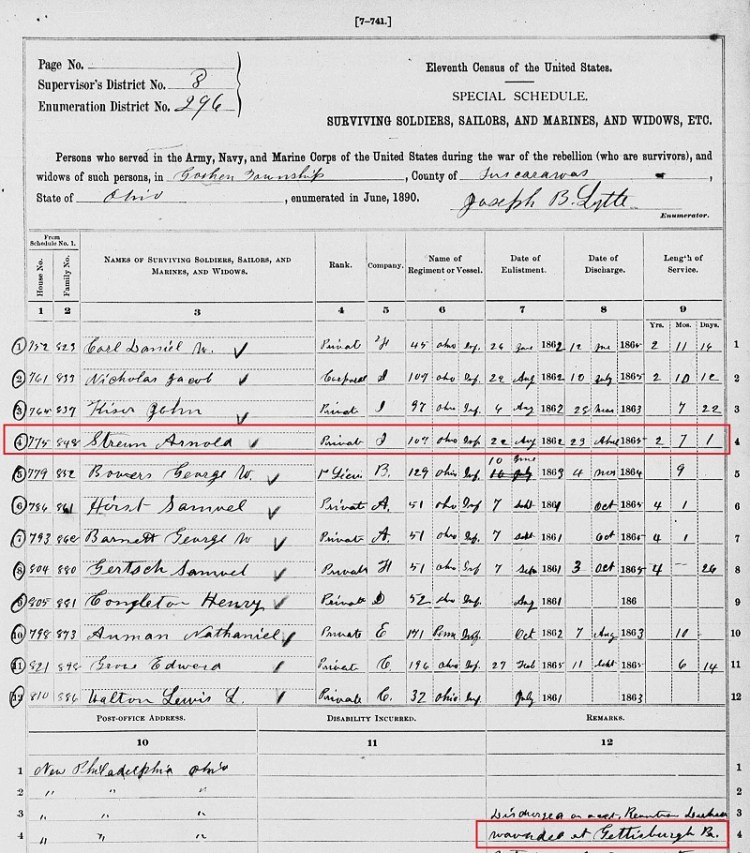 [7-741.]
Page No.
Supervisor's District No. 8
Enumeration District No. 296
Eleventh Census of the United States.
SPECIAL SCHEDULE.
SURVIVING SOLDIERS, SAILORS, AND MARINES, AND WIDOWS, ETC.
Persons who served in the Army, Navy, and Marine Corps of the United States during the war of the rebellion (who are survivors), and
widows of such persons, in Goshen Township, County of Tuscarawas,
State of Ohio, enumerated in June, 1890. Joseph B. Lytle
Enumerator.
From Schedule No. 1.
House No. Family No. NAMES OF SURVIVING SOLDIERS, SAILORS, AND MARINES, AND WIDOWS. Rank. Company. Name of Regiment or Vessel. Date of Enlistment. Date of Discharge. Length of Service.
1 2 3 4 5 6 7 8 9
Yrs. Mos. Days.
1 752 823 Carl Daniel W. Private H 45 ohio Inf. 26 1862 12 1865 2 11 1
2 761 833 Nicholas Jacob Corporal I 107 ohio Inf. 22 Aug 1862 10 July 1865 2 10 12 2
3 764 837 Kiser John Private I 97 ohio Inf 6 Aug 1862 28 Mar 1863 7 22 3
4 775 848 Arnold Private I 107 ohio Inf 22 Aug 1862 23 1865 2 7 1 4
5 779 852 Bowers George W. B. 129 ohio Inf 10 June 1863 4 Mar 1864 9 5
6 786 861 Hirst Samuel Private A. 51 ohio Inf 7 Sept 1861 Oct 1865 4 1 6
7 793 868 Barnett George W Private A. 51 ohio Inf 7 Sept 1861 Oct 1865 4 1 7
8 804 880 Gertsch Samuel Private H 51 ohio Inf 7 Sep 1861 3 Oct 1865 4 — 26 8
9 805 881 Congleton Henry Private D 52 ohio Inf. Aug 1861 186 9
10 798 873 Anman Nathaniel Private E 171 Penn Oct 1862 7 Aug 1863 10 10
11 821 898 Edward Private C. 196 ohio Inf. 27 Feb 1865 11 Sept 1865 6 14 11
12 810 886 Walton Lewis L. Private C. 32 Ohio Inf. July 1861 1863 12
POST-OFFICE ADDRESS. DISABILITY INCURRED. REMARKS.
10 11 12
1 New Philadelphia Ohio 1
2 " " " 2
3 " " " Discharged on acct. 3
4 " " " wounded at Gettisburgh Pa. 4